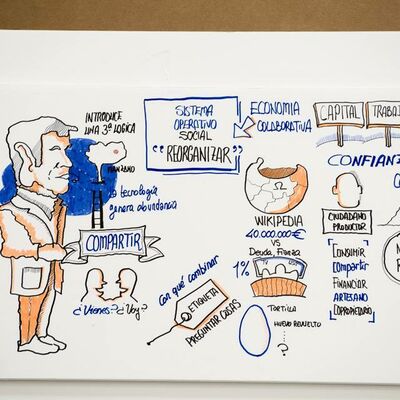 INTRODUCE
UNA 3ª LÓGICA
MANZANO
la tecnología
genera abundancia
COMPARTIR
¿Vienes? ¿Voy?
SISTEMA
OPERATIVO
SOCIAL
"REORGANIZAR"
ECONOMIA
COLABORATIVA
WIKIPEDIA
40.000.000€
VS
Deuda, Fianza
1%
con qué combinar
ETIQUETA
PREGUNTAR COSAS
TORTILLA
HUEVO REVUELTO
?
CAPITAL
TRABA
CONFIANZ
CIUDADANO
PRODUCTOR
CONSUMIR
Compartir
FINANCIAR
ARTESANO
COPROPIETARIO